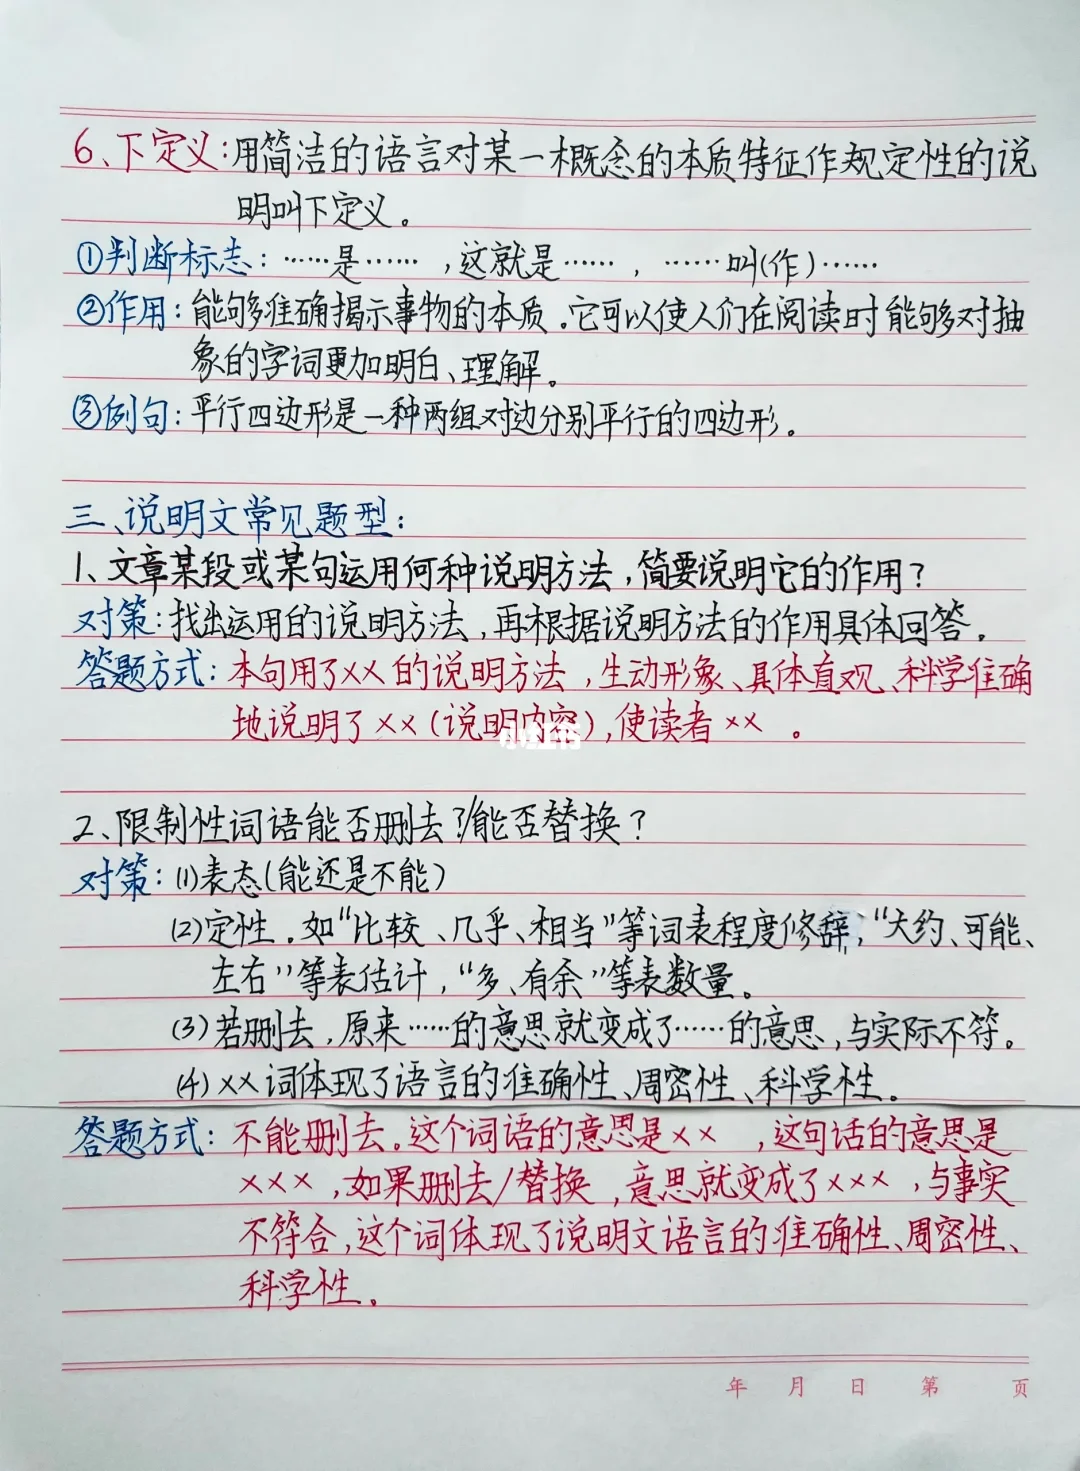 6、下定义:用简洁的语言对某一概念的本质特征作规定性的说
明叫下定义。
①判断标志:……是……,这就是……,……叫(作)……
②作用:能够准确揭示事物的本质。它可以使人们在阅读时能够对抽
象的字词更加明白、理解。
③例句:平行四边形是一种两组对边分别平行的四边形。
三、说明文常见题型:
1、文章某段或某句运用何种说明方法,简要说明它的作用?
对策:找出运用的说明方法,再根据说明方法的作用具体回答。
答题方式:本句用了××的说明方法,生动形象、具体直观、科学准确
地说明了××(说明内容),使读者××。
小红书
2、限制性词语能否删去?/能否替换?
对策:(1)表态(能还是不能)
(2)定性。如“比较、几乎、相当”等词表程度修辞,“大约、可能、
左右”等表估计,“多、有余”等表数量。
(3)若删去,原来……的意思就变成了……的意思,与实际不符。
(4)××词体现了语言的准确性、周密性、科学性。
答题方式:不能删去。这个词语的意思是××,这句话的意思是
×××,如果删去/替换,意思就变成了×××,与事实
不符合,这个词体现了说明文语言的准确性、周密性、
科学性。
年 月 日 第 页